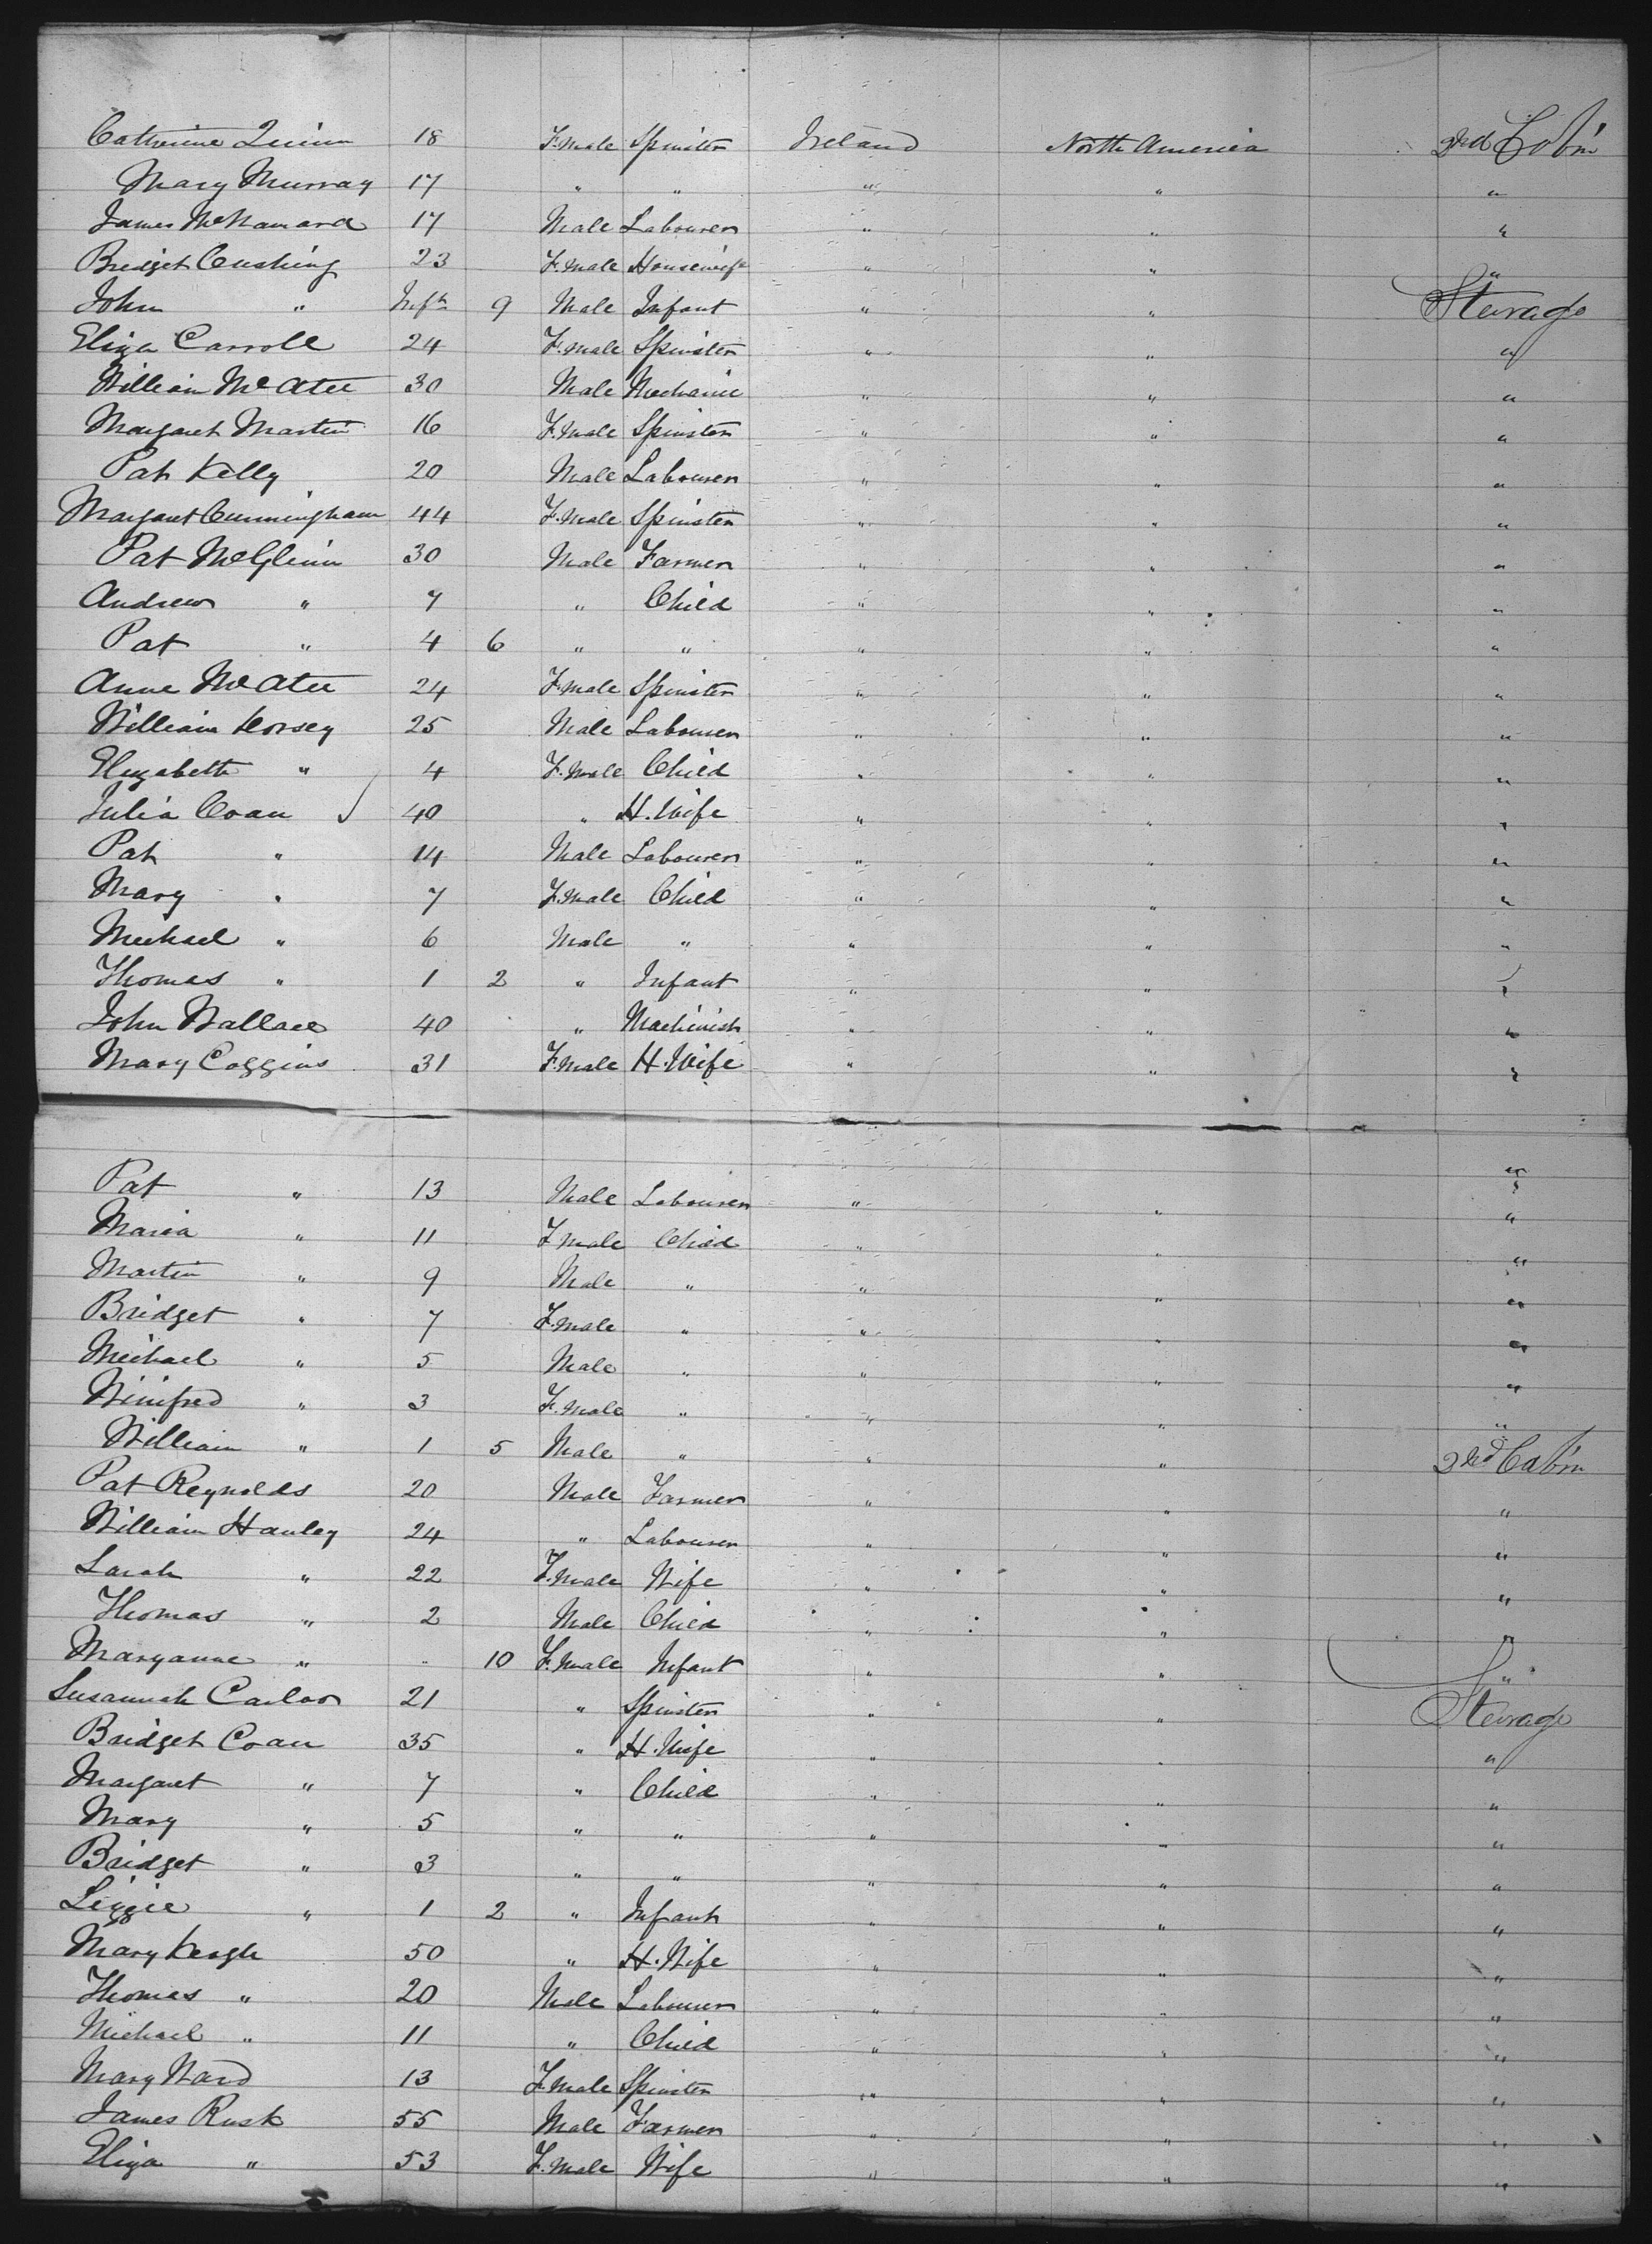 Catherine Quinn 18 F.male Spinster Ireland North America 2nd Cabin
Mary Murray 17 " " " " "
James McNamara 17 Male Labourer " " "
Bridget Cushing 23 F.male Housewife " " "
John " Inft 9 Male Infant " " Sterage
Eliza Carroll 24 F.male Spinster " " "
William McAtee 30 Male Mechanic " " "
Margaret Martin 16 F.male Spinster " " "
Pat Kelly 20 Male Labourer " " "
Margaret Cunningham 44 F.male Spinster " " "
Pat McGlinn 30 Male Farmer " " "
Andrew " 7 " Child " " "
Pat " 4 6 " " " " "
Anne McAtee 24 F.male Spinster " " "
William Horsey 25 Male Labourer " " "
Elizabeth " 4 F.male Child " " "
Julia Coan 40 " H. Wife " " "
Pat " 14 Male Labourer " " "
Mary " 7 F.male Child " " "
Michael " 6 Male " " " "
Thomas " 1 2 " Infant " " "
John Wallace 40 " Machinist " " "
Mary Coggins 31 F.male H. Wife " " "
Pat " 13 Male Labourer " " "
Maria " 11 F.male Child " " "
Martin " 9 Male " " " "
Bridget " 7 F.male " " " "
Michael " 5 Male " " " "
Winifred " 3 F.male " " " "
William " 1 5 Male " " " "
Pat Reynolds 20 Male Farmer " " 2nd Cabin
William Hanley 24 " Labourer " " "
Sarah " 22 F.male Wife " " "
Thomas " 2 Male Child " " "
Maryanne " " 10 F.male Infant " " "
Susannah 21 " Spinster " " Sterage
Bridget Coan 35 " H. Wife " " "
Margaret " 7 " Child " " "
Mary " 5 " " " " "
Bridget " 3 " " " " "
Lizzie " 1 2 " Infant " " "
Mary Keogh 50 " H. Wife " " "
Thomas " 20 Male Labourer " " "
Michael " 11 " Child " " "
Mary Ward 13 F.male Spinster " " "
James Rusk 55 Male Farmer " " "
Eliza " 53 F.male Wife " " "